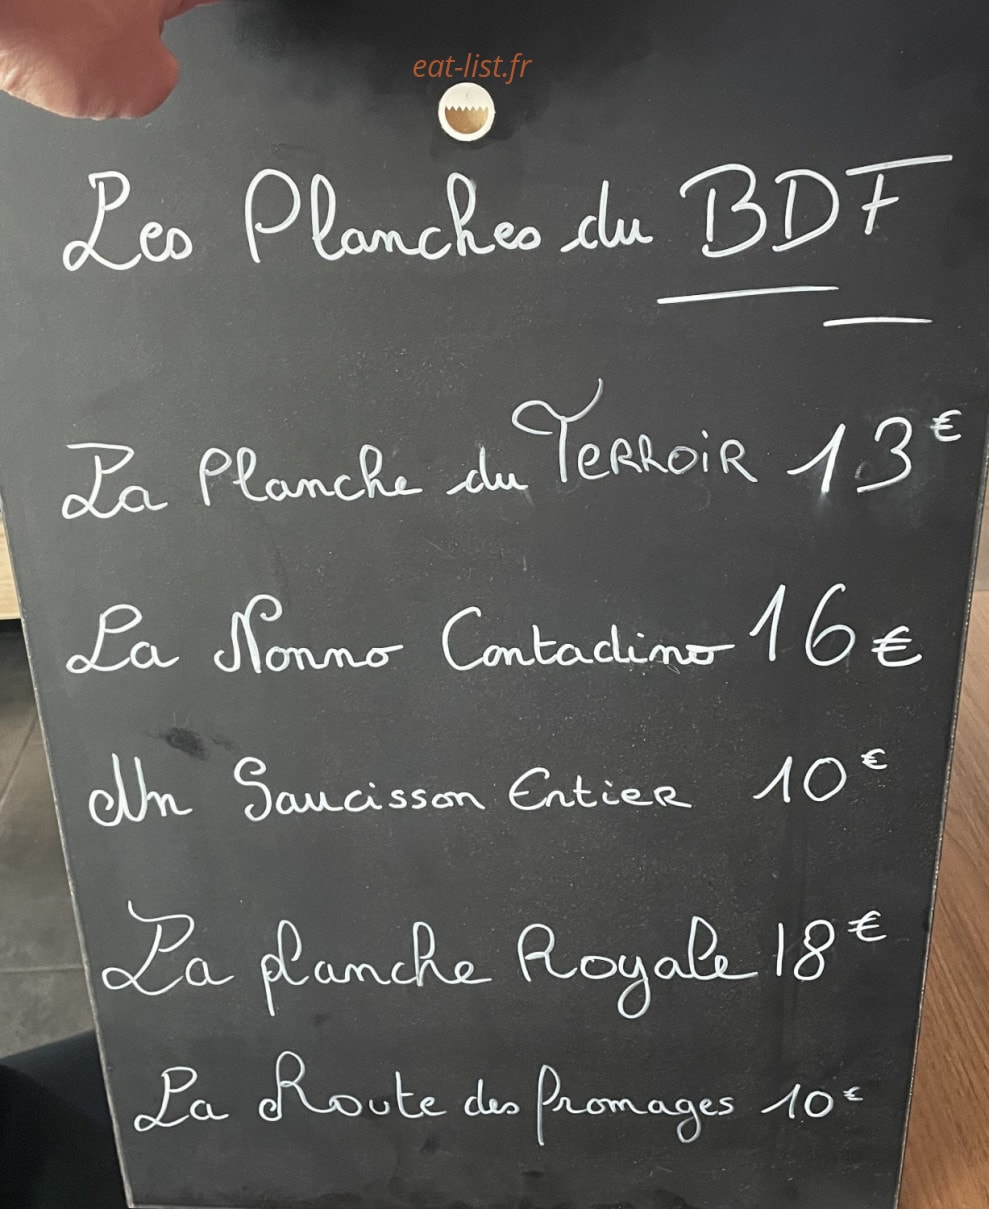 eat-list.fr
Les Planches du BDF
La Planche du Terroir 13€
La Nonno Contadino 16€
Un Saucisson Entier 10€
La planche Royale 18€
La Route des fromages 10€